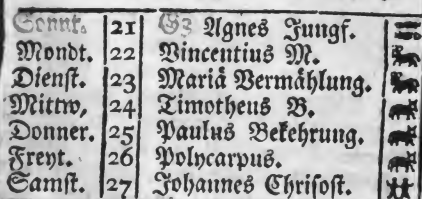 Sonnt. 21 G3 Agnes Jungf.
Mondt. 22 Vincentius M.
Dienst. 23 Mariä Vermählung.
Mittw, 24 Timotheus B.
Donner. 25 Paulus Bekehrung.
Freyt. 26 Polycarpus.
Samst. 27 Johannes Chrisost.